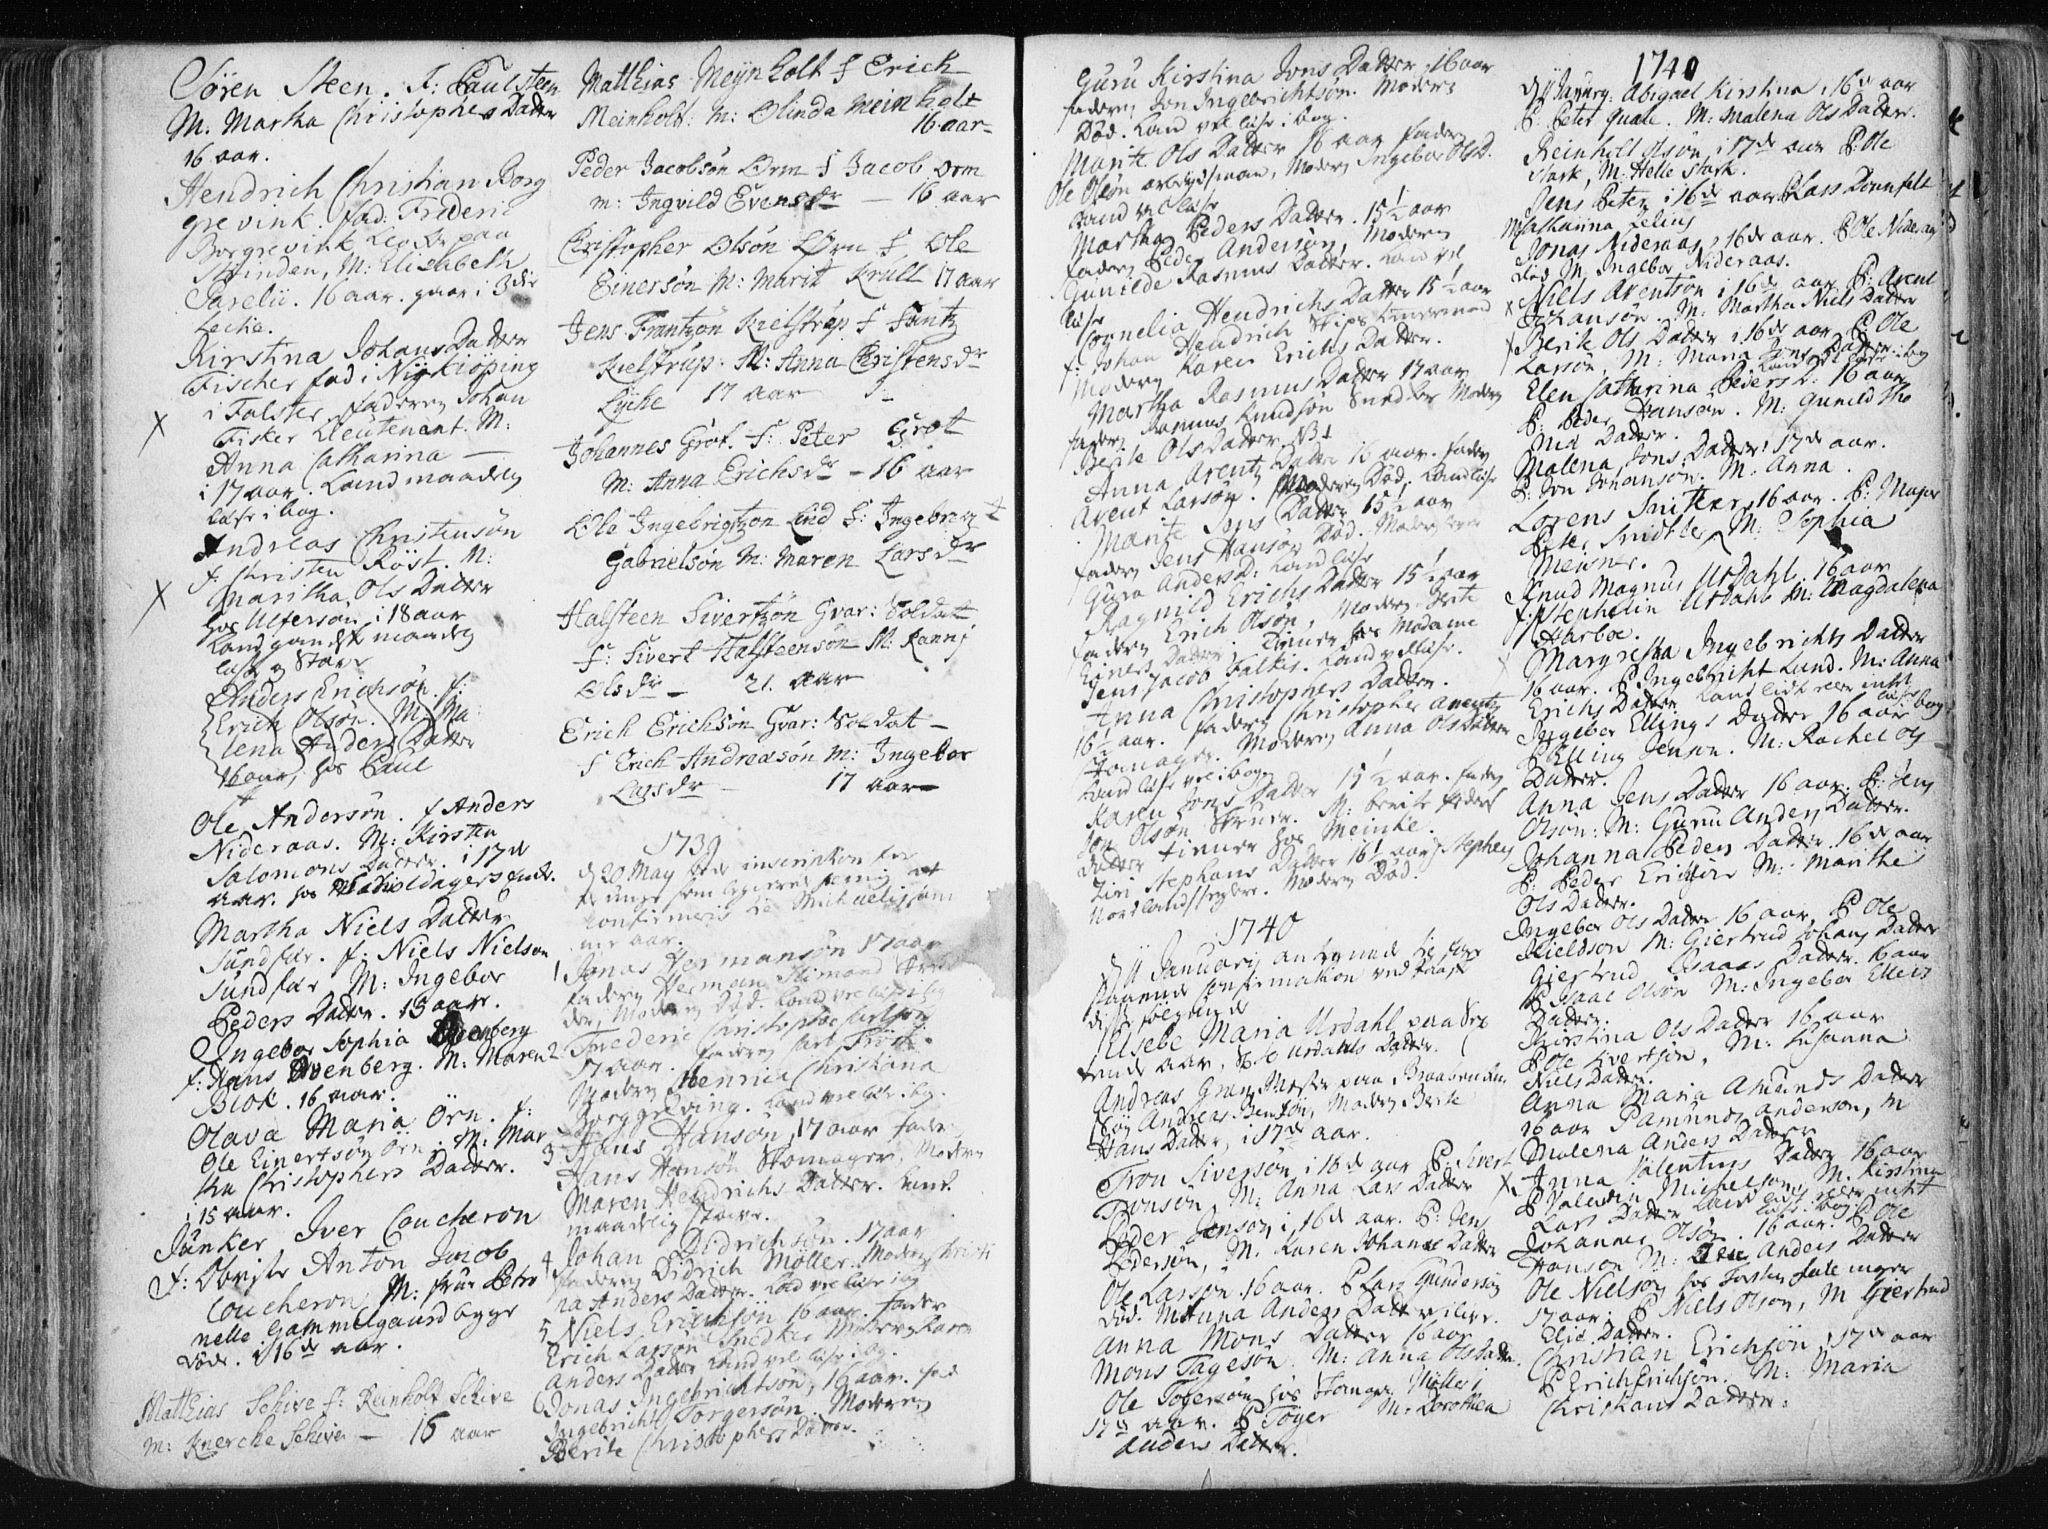 Søren Steen. F: Paul Steen
M. Martha Christophers Datter
16 aar.
Hendrich Christian Borg
grevink. fad: Frederic
Borgrevink
M: Elisabeth
Parelii. 16 aar. gaar i 3die
Lectie.
Kirstina Johans Datter
Fischer fød i Nykiøping
i Falster, faderen Johan
Fisker Lieutenant. M:
Anna Catharina —
i 17 aar. kand maadelig
læse i bog.
Andreas Christensøn
f. Christen Röst. M:
Maritha Ols Datter
hos Ulfersøn, i 18 aar
kand ganske maadelig
læse og Stave
Anders Erichsøn. f:
Erich Olsøn. M: Ma
lena Anders Datter
16 aar, hos Paul
Ole Andersøn. f Anders
Nideraas. M: Kirsten
Salomons Datter. i 17de
aar. hos
Martha Niels Datter
Sundfær. f: Niels Nielsøn
Sundfær M: Ingebor
Peders Datter. 15 aar.
Ingebor Sophia
f: Hans M: Maren
Blok. 16 aar.
Olava Maria Örn. f:
Ole Einersøn Örn. M: Mar
tha Christophers Datter.
i 15 aar.
Junker Iver Coucheron
f: Obriste Anton Jacob
Coucheron M: frue Petro
nelle Gammelgaard begge
døde. i 16de aar.
Matthias Schive f: Reinholt Schive
m: Knerche Schive — 16 aar
Matthias Meynholt f Erich
Meinholt: M: Olinda Meinholt
16 aar —
Peder Jacobsøn Orm f Jacob Orm
m: Ingvild Evensdr — 16 aar
Christopher Olsøn Ørn f. Ole
Einersøn M: Marit Krull 17 aar
Jens Frantzøn Kielstrup f Frantz
Kielstrup. M: Anna Christensdr
Lyche 17 aar
Johannes Grot. f: Peter Grot
M: Anna Erichsdr — 16 aar
Ole Ingebrigtzøn Lind f: Ingebregt
Gabrielsøn M: Maren Larsdr
Halsteen Sivertzøn Gvar: Soldat
f: Sivert Halsteensøn M: Rannj
Olsdr — 21. aar
Erich Erichsøn Gvar: Soldat —
f Erich Andreasøn M: Ingebor
Larsdr — 17 aar —
1739
d 20 May inscription
de unge som
confirmeris Michaeli
aar.
1 Jonas Hermansøn 17 aar
faderen Herman
Moderen Død. kand vel læse i bog
2 Frederic Christopher
17 aar. faderen Carl
Moderen Henrica Christiana
Borggreving. kand vel læse i bog.
3 Hans Hansøn, 17 aar fader
Hans Hansøn Skomager. Moderen
Maren Hendrichs Datter. kand
maadelig stave.
4 Johan Didrichsøn. 17 aar
faderen Didrich Möller. Moderen Christi
na Anders Datter. kand vel læse i bog
5 Niels Erichsøn 16 aar. fader
Erich Larsøn Snedker Moderen Karen
Anders Datter kand vel læse i bog.
6 Jonas Ingebrichtsøn, 16 aar. fad
Ingebricht Torgersøn. Moderen
Berite Christophers Datter.
Guru Kirstina Jons Datter, 16 aar
faderen Jon Ingebrichtsøn. Moderen
Død. kand vel læse i bog.
Marite Ols Datter 16 aar fader
Ole Olsøn arbeydsman, Moderen Ingebor Ols D.
kand vel læse
Martha Peders Datter. 15½ aar
faderen Peder Andersøn, Moderen
Gunilde Rasmus Datter. kand vel
læse
Cornelia Hendrichs Datter 15½ aar
f: Johan Hendrich Skips
Moderen Karen Erichs Datter.
Martha Rasmus Datter 17 aar
faderen Rasmus Knudsøn Snedker Moderen
Berite Ols Datter
Anna Arentz Datter 16 aar. fader
Arent Larsøn. Moderen Død. kand læse
Marite Jens Datter 15½ aar
faderen Jens Hansøn Død. Moder
Guru Anders D: kand læse
Ragnild Erichs Datter 15½ aar
faderen Erich Olsøn, Moderen Berite
Einers Datter, tienner hos Madame
Jens Jacob Faltis. kand vel læse.
Anna Christophers Datter.
16½ aar. faderen Christopher Arentz
Skomager. Moderen Anna Ols Datter
kand læse vel i bog
Karen Jons Datter 15½ aar. fader
Jon Olsøn M: Berite Peders
Datter tienner hos Meinke.
Ziri Stephans Datter 16½ aar f Stephen
Nordlandsseyler. Moderen Død.
1740
d 11 Januarij antegned til fore
staaende Confirmation ved Paask
disse følgende
Elsebe Maria Ursdahl paa Sex
tende aar, Ursdahls Datter.
Andreas Gram, Mester paa Braabenken
Søn Andreas Bentsøn, Moderen Berite
Hans Datter, i 17de aar.
Tron Siversøn i 16de aar P. Sivert
Tronsøn M. Anna Lars Datter
Peder Jensøn i 16de aar. P: Jens
Pedersøn, M. Karen Johans Datter
Ole Larsøn. 16 aar. P Lars Gundersøn
Død. M Anna Anders Datter
Anna Mons Datter 16 aar
Mons Tagesøn. M: Anna Ols Datter.
Ole Togersøn hos Skomager Møller i
17de aar. P Toger M: Dorothea
Anders Datter.
1740
d 11 January: Abigael Kirstina, 16de aar
P. Peter Quale. M: Malena Ols Datter.
Reinholt Olsøn, i 17de aar P: Ole
Stark, M: Helle Stark.
Jens Peter i 16de aar P Lars Dounfelt
M Catharina Zelius
Jonas Nideraas, 16de aar. P Ole Nideraas
død M. Ingebor Nideraas.
Niels Arentsøn i 16de aar P: Arent
Johansøn. M: Martha Niels Datter
Berite Ols Datter i 16de aar P. Ole
Larsøn, M: Maria Jons Datter
Elen Catharina Peders D: 16 aar
P: Peder Hansøn. M: Gunild Tho
Datter.
Malena Jons Datter 17de aar.
P. Jon Johansøn. M: Anna.
Lorens Snitker, 16 aar. P: Major
Peter Snidtker, M: Sophia
Meisner.
Knud Magnus Ursdahl, 16 aar
f. Stephelin Ursdahl M: Magdalena
Harboe.
Margretha Ingebrichts Datter
16 aar. P. Ingebricht Lund. M: Anna
Erichs Datter kand lidt eller intet læse i bog
Ingebor Ellings Datter 16 aar
P Elling Jensøn. M: Rachel Ols
Datter.
Anna Jens Datter 16 aar. P: Jens
Olsøn: M: Guru Anders Datter.
Johanna Peders Datter. 16de aar
P: Peder Erichsøn M: Marithe
Ols Datter.
Ingebor Ols Datter 16 aar, P Ole
Kieldsøn M: Giertrud Johans Datter
Giertrud Isaacs Datter. 16 aar
P Isaac Olsøn M: Ingebor Ellers
Datter.
Kirstina Ols Datter 16 aar
P Ole Sivertsøn, M: Susanna
Niels Datter.
Anna Maria Amunds Datter
16 aar P Amunds Andersøn, M
Malena Anders Datter
Anna Valentins Datter 16 aar
P Valentin Michelsøn, M. Kirstina
Lars Datter kand læse eller intet
Johannes Olsøn. 16 aar. P Ole
Hansøn M: Anders Datter
Ole Nielsøn hos
17 aar, P Niels Olsøn, M Giertrud
Elis Datter.
Christian Erichsøn, 17de aar
P Erich Erichsøn. M: Maria
Christians Datter.